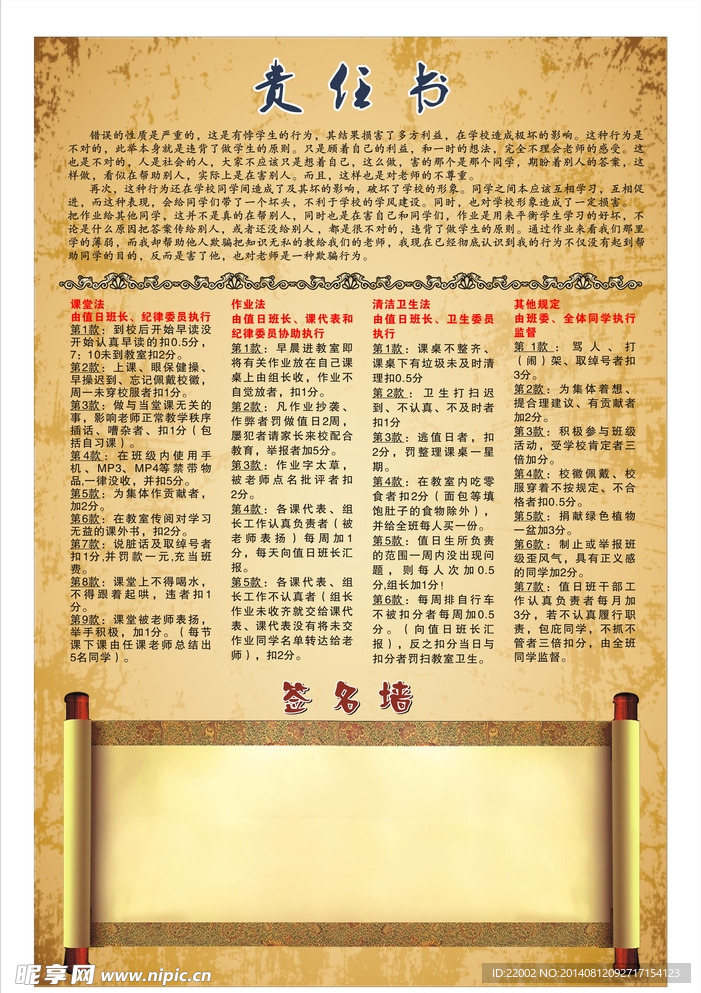 责任书
错误的性质是严重的，这是有悖学生的行为，其结果损害了多方利益，在学校造成极坏的影响。这种行为是
不对的，此举本身就是违背了做学生的原则。只是顾着自己的利益，和一时的想法，完全不理会老师的感受。这
也是不对的，人是社会的人，大家不应该只是想着自己，这么做，害的那个是那个同学，期盼着别人的答案，这
样做，看似在帮助别人，实际上是在害别人。而且，这样也是对老师的不尊重。
再次，这种行为还在学校同学间造成了及其坏的影响，破坏了学校的形象。同学之间本应该互相学习，互相促
进，而这种表现，会给同学们带了一个坏头，不利于学校的学风建设。同时，也对学校形象造成了一定损害。
把作业给其他同学，这并不是真的在帮别人，同时也是在害自己和同学们，作业是用来平衡学生学习的好坏，不
论是什么原因把答案传给别人，或者还没给别人，都是很不对的，违背了做学生的原则。通过作业来看我们那里
学的薄弱，而我却帮助他人欺骗把知识无私的教给我们的老师，我现在已经彻底认识到我的行为不仅没有起到帮
助同学的目的，反而是害了他，也对老师是一种欺骗行为。
课堂法
由值日班长、纪律委员执行
第1款：到校后开始早读没
开始认真早读的扣0.5分，
7：10未到教室扣2分。
第2款：上课、眼保健操、
早操迟到、忘记佩戴校徽，
周一未穿校服者扣1分。
第3款：做与当堂课无关的
事，影响老师正常教学秩序
插话、嘈杂者、扣1分（包
括自习课）。
第4款：在班级内使用手
机、MP3、MP4等禁带物
品，一律没收，并扣5分。
第5款：为集体作贡献者，
加2分。
第6款：在教室传阅对学习
无益的课外书，扣2分。
第7款：说脏话及取绰号者
扣1分，并罚款一元，充当班
费。
第8款：课堂上不得喝水，
不得跟着起哄，违者扣1
分。
第9款：课堂被老师表扬，
举手积极，加1分。（每节
课下课由任课老师总结出
5名同学）。
作业法
由值日班长、课代表和
纪律委员协助执行
第1款：早晨进教室即
将有关作业放在自己课
桌上由组长收，作业不
自觉放者，扣1分。
第2款：凡作业抄袭、
作弊者罚做值日2周，
屡犯者请家长来校配合
教育，举报者加5分。
第3款：作业字太草，
被老师点名批评者扣
2分。
第4款：各课代表、组
长工作认真负责者（被
老师表扬）每周加1
分，每天向值日班长汇
报。
第5款：各课代表、组
长工作不认真者（组长
作业未收齐就交给课代
表、课代表没有将未交
作业同学名单转达给老
师），扣2分。
清洁卫生法
由值日班长、卫生委员
执行
第1款：课桌不整齐、
课桌下有垃圾未及时清
理扣0.5分
第2款：卫生打扫迟
到、不认真、不及时者
扣1分
第3款：逃值日者，扣
2分，罚整理课桌一星
期。
第4款：在教室内吃零
食者扣2分（面包等填
饱肚子的食物除外），
并给全班每人买一份。
第5款：值日生所负责
的范围一周内没出现问
题，则每人次加0.5
分,组长加1分！
第6款：每周排自行车
不被扣分者每周加0.5
分。（向值日班长汇
报），反之扣分当日与
扣分者罚扫教室卫生。
其他规定
由班委、全体同学执行
监督
第1款：骂人、打
（闹）架、取绰号者扣
3分。
第2款：为集体着想、
提合理建议、有贡献者
加2分。
第3款：积极参与班级
活动，受学校肯定者三
倍加分。
第4款：校徽佩戴、校
服穿着不按规定、不合
格者扣0.5分。
第5款：捐献绿色植物
一盆加3分。
第6款：制止或举报班
级歪风气，具有正义感
的同学加2分。
第7款：值日班干部工
作认真负责者每月加
3分，若不认真履行职
责，包庇同学，不抓不
管者三倍扣分，由全班
同学监督。
签名墙
昵享网 www.nipic.cn
ID:22002 NO:20140812092717154123